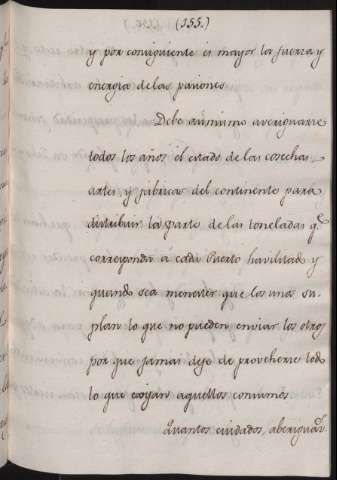 (155.)
y por consiguiente es mayor la fuerza y
energia de las pasiones.
Debe asimismo averiguarse
todos los años el estado de las cosechas,
artes, y fabricas del continente para
distribuir la parte de las toneladas q.e
corresponda á cada Puerto havilitado y
quando sea menester que los unos su-
plan lo que no pueden enviar los otros
por que jamas deje de proveherse todo
lo que exijan aquellos consumos.
Quantos cuidados, aberiguac.s